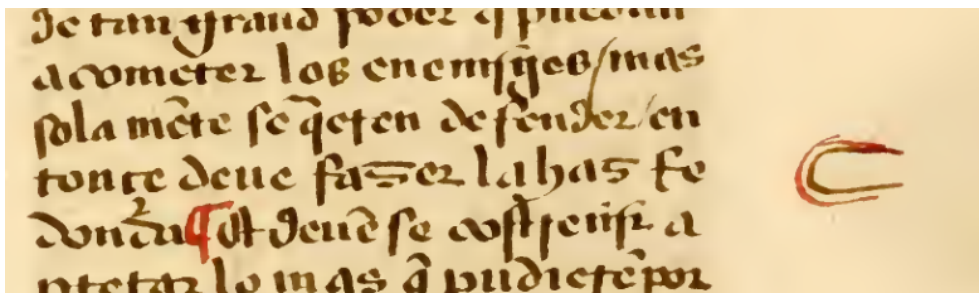 de tan grand poder q̃ puedan
acometer los enemigos / mas
sola mẽte se q̃eren defender / en
tonçe deue fazer la haz re
donda ¶ Et deuẽ se costreñir a
pretar lo mas q̃ pudierẽ por